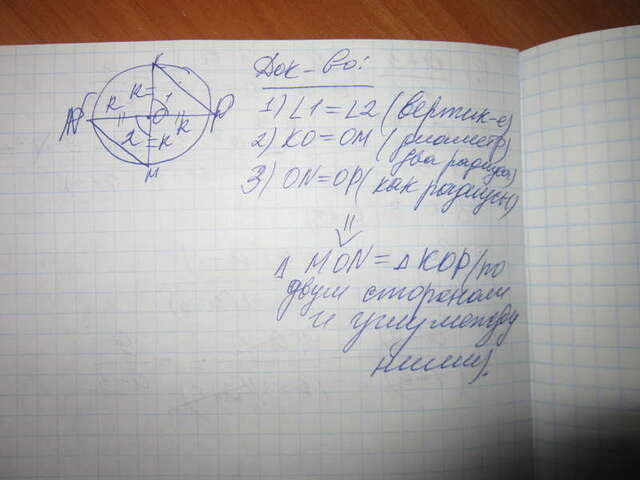 K
Док-во:
R R 1
1) ∠1=∠2 (вертик-е)
N O P
R
2) KO=OM (диаметр
2 R
два радиуса)
M
3) ON=OP (как радиусы)
⇓
Δ MON = Δ KOP (по
двум сторонам
и углу между
ними).